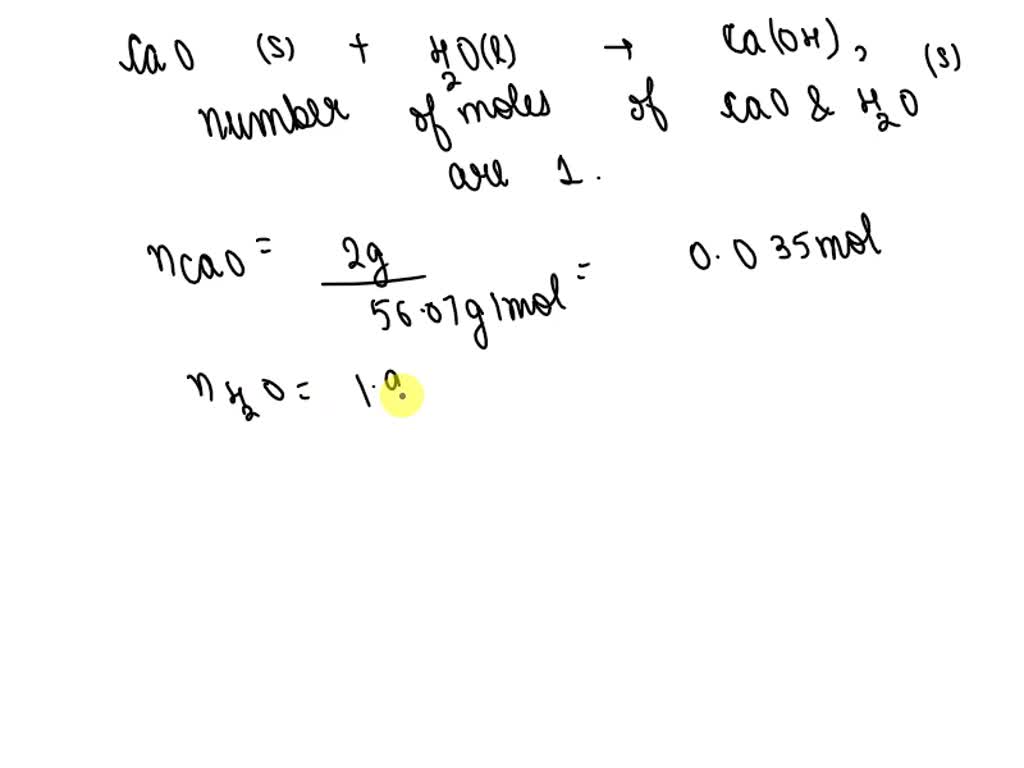 CaO (s) + H2O(l) → Ca(OH)2 (s)
number of moles of CaO & H2O
are 1.
nCaO = 2g / 56.07g/mol = 0.035mol
nH2O = 1.9